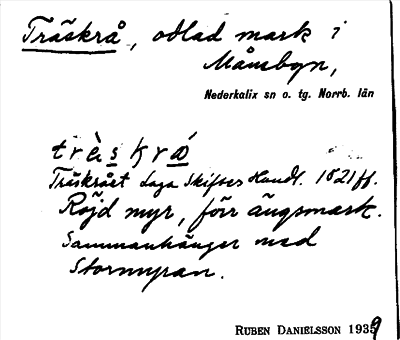 Träskrå, odlad mark i
Månsbyn,
Nederkalix sn o. tg. Norrb. län
Träskrået Laga Skiftes Handl. 1821 ff.
Röjd myr, förr ängsmark.
Sammanhänger med
Stormyran.
RUBEN DANIELSSON 1939